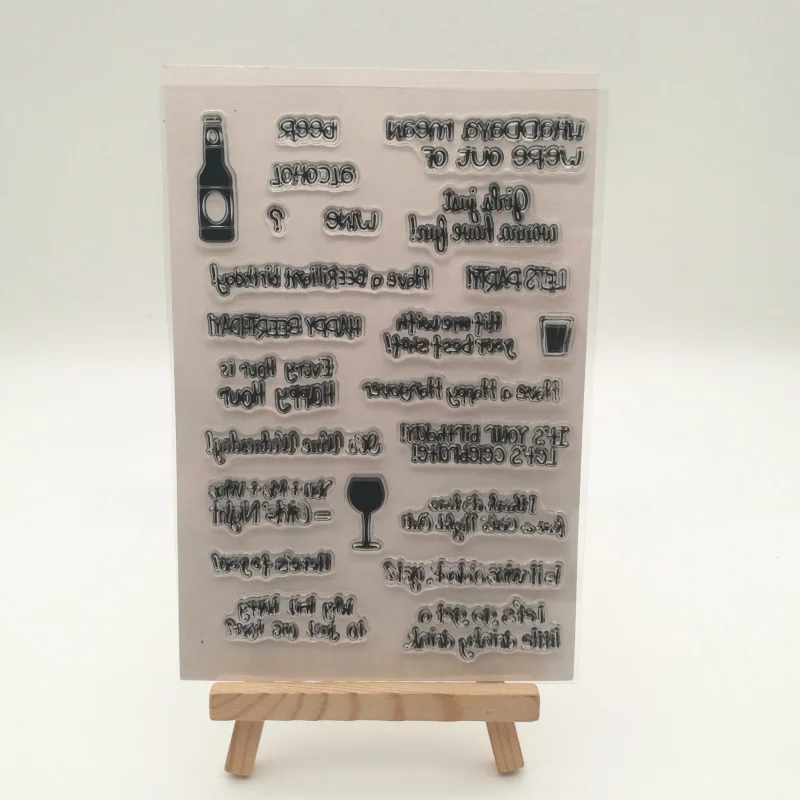 WHADDAYA mean
we're out of
Beer
ALCOHOL
Wine
?
Girls just
wanna have fun!
LET'S PARTY!
Have a BEERilliant birthday!
Hit me with
your best shot!
HAPPY BEERTHDAY!
Every Hour is
Happy Hour
Have a Happy Hangover
It's your birthday!
Let's celebrate!
It's Wine Wednesday!
You + Me + Wine
= Girls' Night
I think it's time
for a Girls' Night Out!
Here's to you!
Is it wine o'clock yet?
Why limit happy
to just one hour?
Let's go get a
little drinky drink.